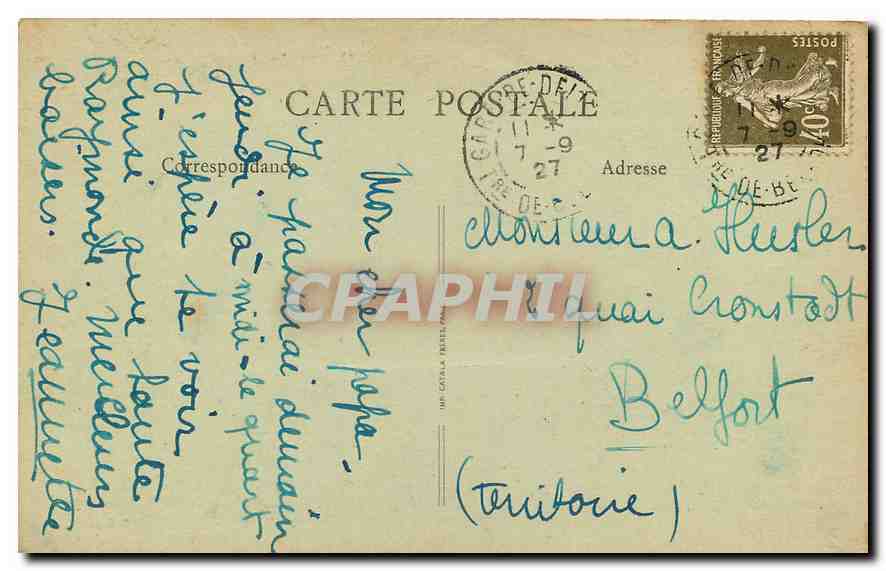 CARTE POSTALE
Correspondance
Adresse
Mon cher papa -
Je passerai demain
Jeudi à midi-le quart
J'espère te voir
ainsi que tante
Raymonde. Meilleurs
baisers. Jeannette
IMP. CATALA FRÈRES, PARIS
11 *
7 -9
27
REPUBLIQUE FRANÇAISE
POSTES
40c
11 *
7 -9
27
Monsieur A. Husler
2 quai Cronstadt
Belfort
(territoire)
CPAPHIL